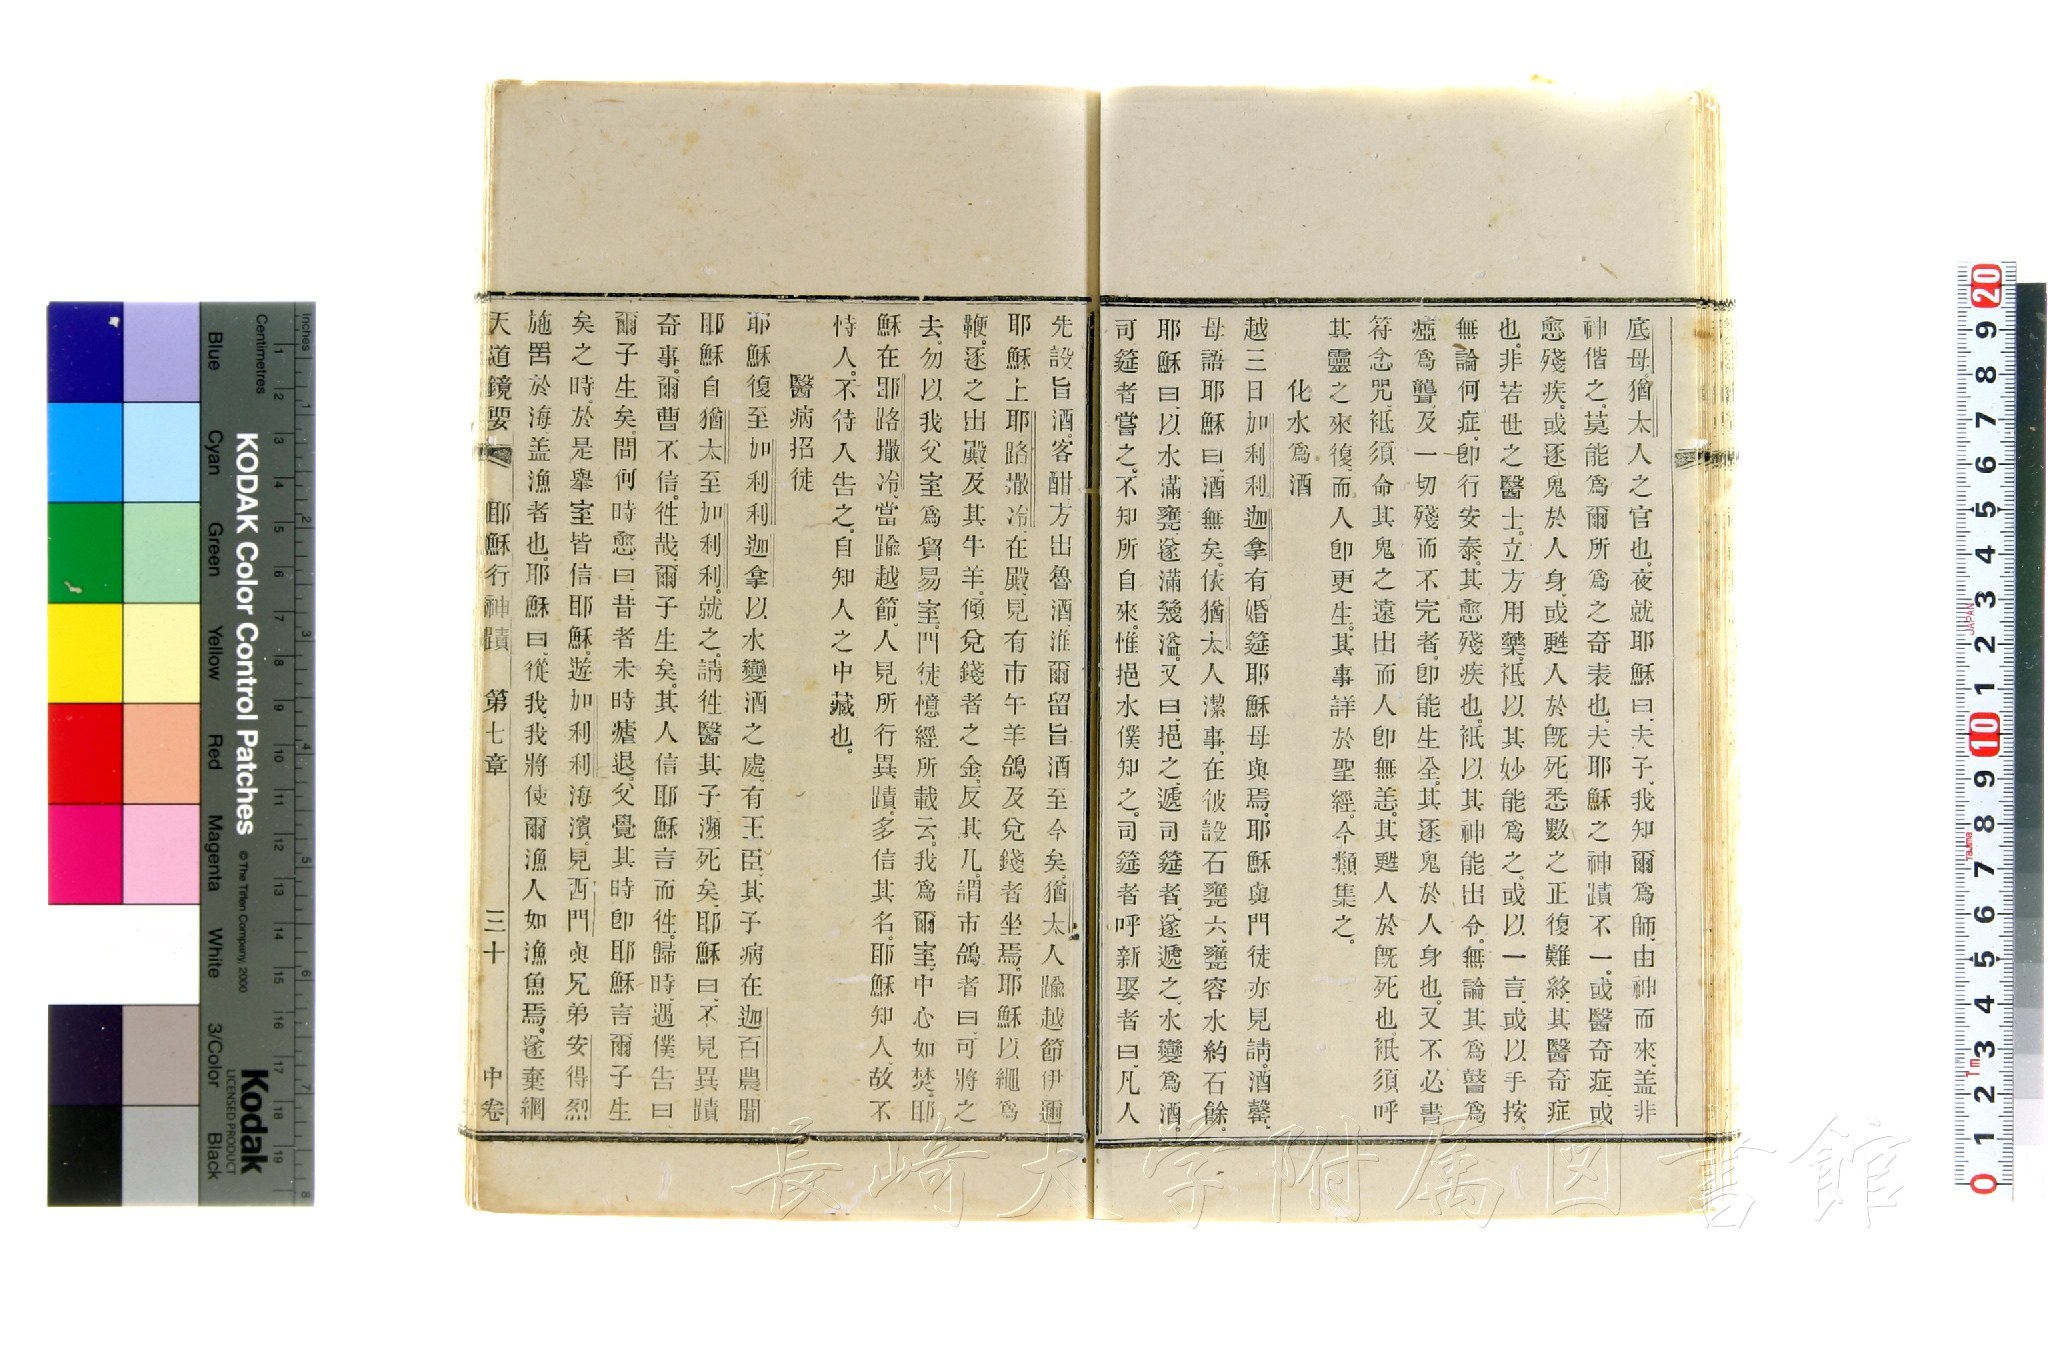 底母。猶太人之官也。夜就耶穌曰、夫子、我知爾爲師、由神而來、盖非
神偕之、莫能爲爾所爲之奇表也、夫耶穌之神蹟不一。或醫奇症、或
愈殘疾。或逐鬼於人身、或甦人於旣死悉數之正復難終、其醫奇症
也。非若世之醫士。立方用藥、祗以其妙能爲之。或以一言、或以手按。
無論何症、卽行安泰。其愈殘疾也。祗以其神能出令。無論其爲瞽爲
瘧爲聾、及一切殘而不完者、卽能生全。其逐鬼於人身也。又不必書
符念咒、祗須命其鬼之遠出而人卽無恙。其甦人於旣死也、祗須呼
其靈之來復、而人卽更生。其事詳於聖經、今類集之。
化水爲酒
越三日加利利迦拿有婚筵耶穌母與焉、耶穌與門徒亦見請。酒罄、
母語耶穌曰、酒無矣。依猶太人潔事、在彼設石甕六、甕容水約石餘。
耶穌曰、以水滿甕、遂滿幾溢。又曰、挹之、遞司筵者、遂遞之、水變爲酒。
司筵者嘗之。不知所自來。惟挹水僕知之。司筵者呼新娶者曰、凡人
先設旨酒。客酣、方出魯酒、淮爾留旨酒至今矣。猶太人踰越節伊邇
耶穌上耶路撒冷、在殿、見有市午羊鴿及兌錢者坐焉。耶穌以繩爲
鞭。逐之出殿、及其牛羊。傾兌錢者之金、反其几、謂市鴿者曰、可將之
去。勿以我父室爲貿易室。門徒憶經所載云。我爲爾室、中心如焚。耶
穌在耶路撒冷、當踰越節。人見所行異蹟、多信其名。耶穌知人故不
恃人。不待人告之。自知人之中藏也。
醫病招徒
耶穌復至加利利迦拿以水變酒之處、有王臣、其子病在迦百農、聞
耶穌自猶太至加利利。就之、請徃醫其子、瀕死矣、耶穌曰、不見異蹟
奇事。爾曹不信。徃哉、爾子生矣。其人信耶穌言而徃。歸時、遇僕告曰、
爾子生矣。問何時愈、曰、昔者未時瘧退。父覺其時卽耶穌言爾子生
矣之時。於是舉室皆信耶穌。遊加利利海濱。見西門與兄弟安得烈
施罟於海盖漁者也。耶穌曰、從我、我將使爾漁人如漁魚焉。遂棄網
天道鏡要 耶穌行神蹟 第七章 三十 中卷
KODAK Color Control Patches
© The Tiffen Company, 2000
Kodak
LICENSED PRODUCT
Inches
Centimetres
Blue
Cyan
Green
Yellow
Red
Magenta
White
3/Color
Black
長崎大学附属図書館